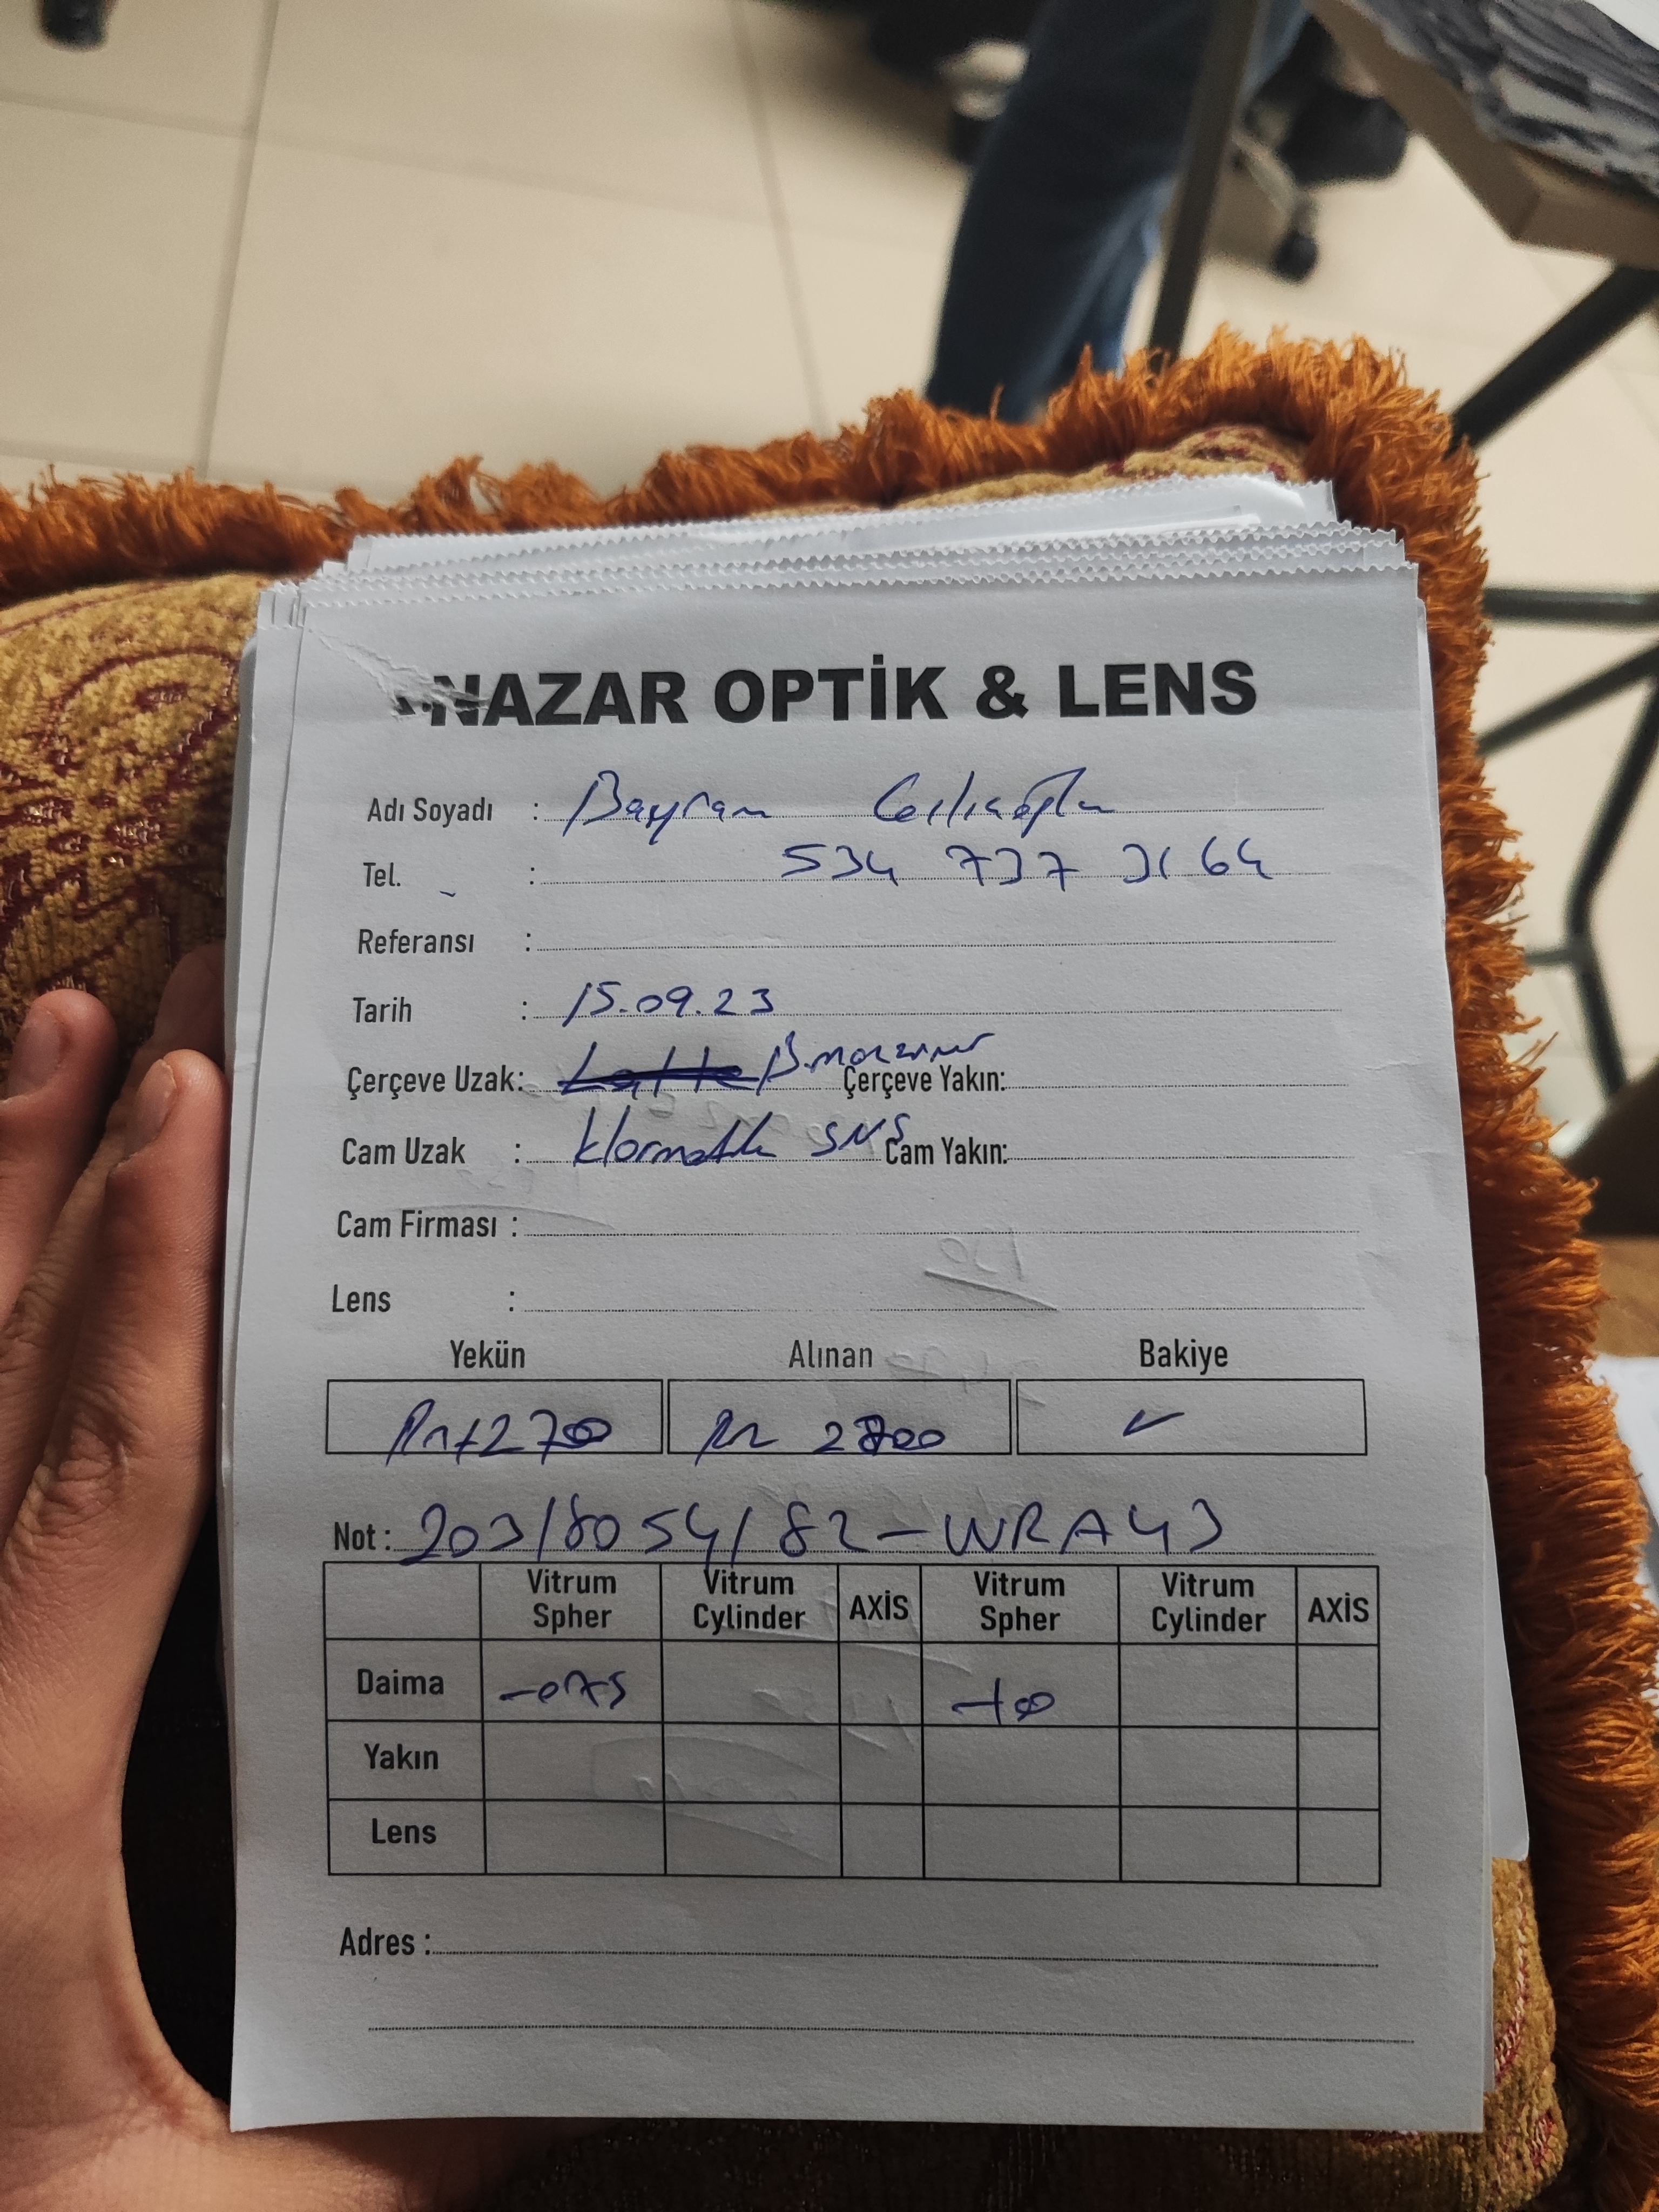 NAZAR OPTİK & LENS
Adı Soyadı : Bayram
Tel. : 534 737 3164
Referansı :
Tarih : 15.09.23
Çerçeve Uzak: Çerçeve Yakın:
Cam Uzak : SNS Cam Yakın:
Cam Firması :
Lens :
Yekün Alınan Bakiye
2700 ✓
Not : 203/8054/82-WRA43
Vitrum Spher Vitrum Cylinder AXİS Vitrum Spher Vitrum Cylinder AXİS
Daima -075 -100
Yakın
Lens
Adres :